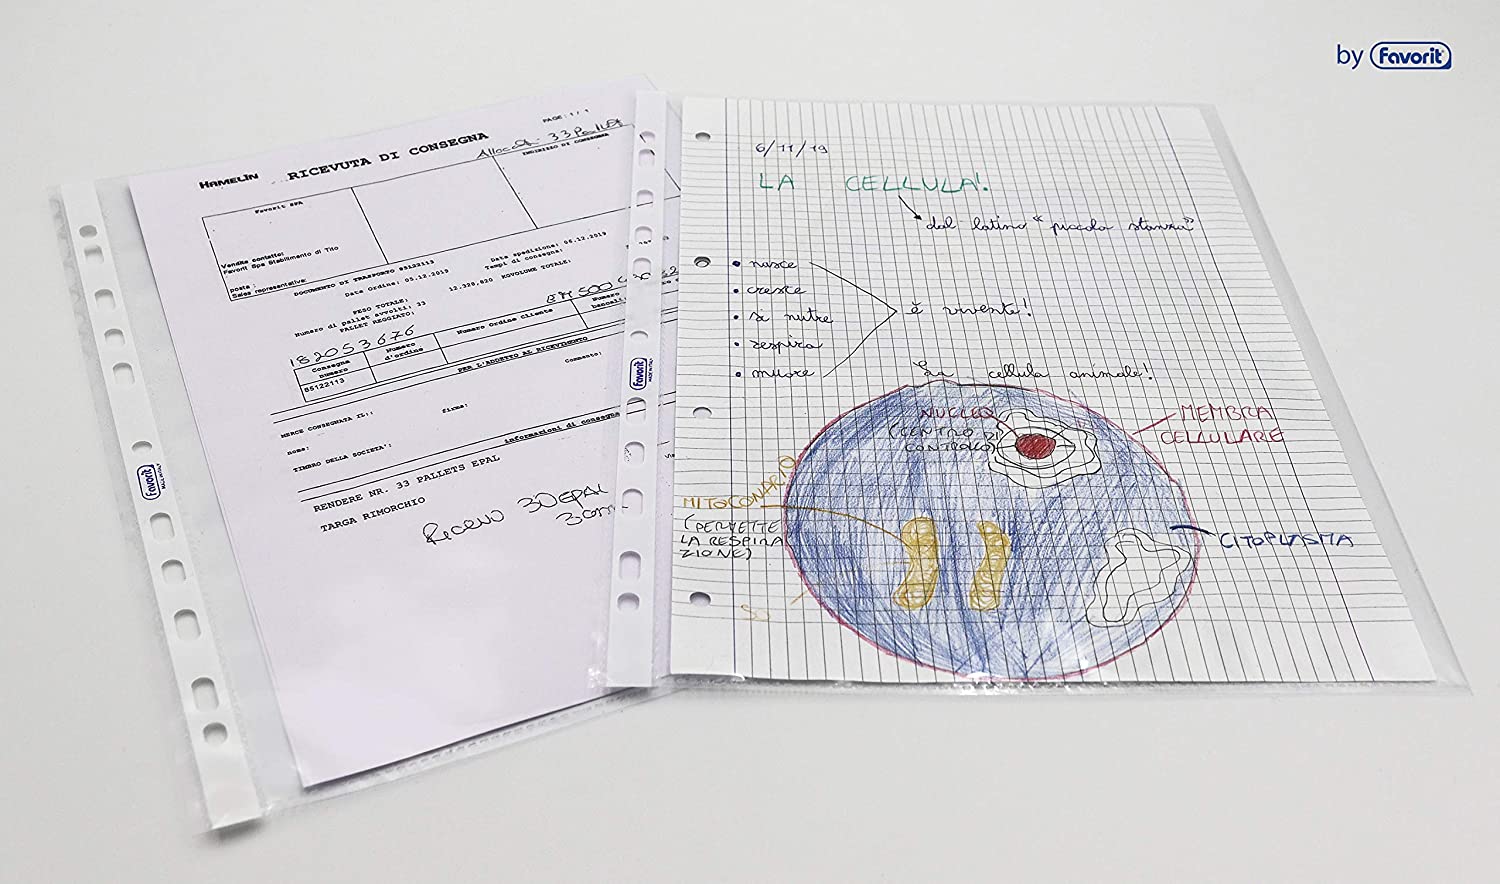 by Favorit
PAGE: 1 / 1
HAMELIN
RICEVUTA DI CONSEGNA
33
INDIRIZZO DI CONSEGNA
Favorit SPA
Vendite contatto:
Favorit Spa Stabilimento di Tito
posta :
Sales representative:
DOCUMENTO DI TRASPORTO 85122113
Data Ordine: 05.12.2019
Data spedizione: 06.12.2019
Tempi di consegna:
PESO TOTALE:
12.320,820 KGVOLUME TOTALE:
Numero di pallet avvolti: 33
PALLET REGGIATO:
182053676
Consegna
numero
Numero
d'ordine
Numero Ordine Cliente
Numero
85122113
PER L'ADDETTO AL RICEVIMENTO
Commento:
MERCE CONSEGNATA IL::
firma:
nome:
TIMBRO DELLA SOCIETA':
informazioni di consegna
RENDERE NR. 33 PALLETS EPAL
TARGA RIMORCHIO
30 EPAL
Favorit
MADE IN ITALY
Favorit
MADE IN ITALY
6/11/19
LA CELLULA!
dal latino "piccola stanza"
• nasce
• cresce
• si nutre
• respira
• muore
è vivente!
La cellula animale!
NUCLEO
(CENTRO DI
CONTROLLO)
MEMBRA
CELLULARE
MITOCONDRIO
(PERMETTE
LA RESPIRA
ZIONE)
CITOPLASMA